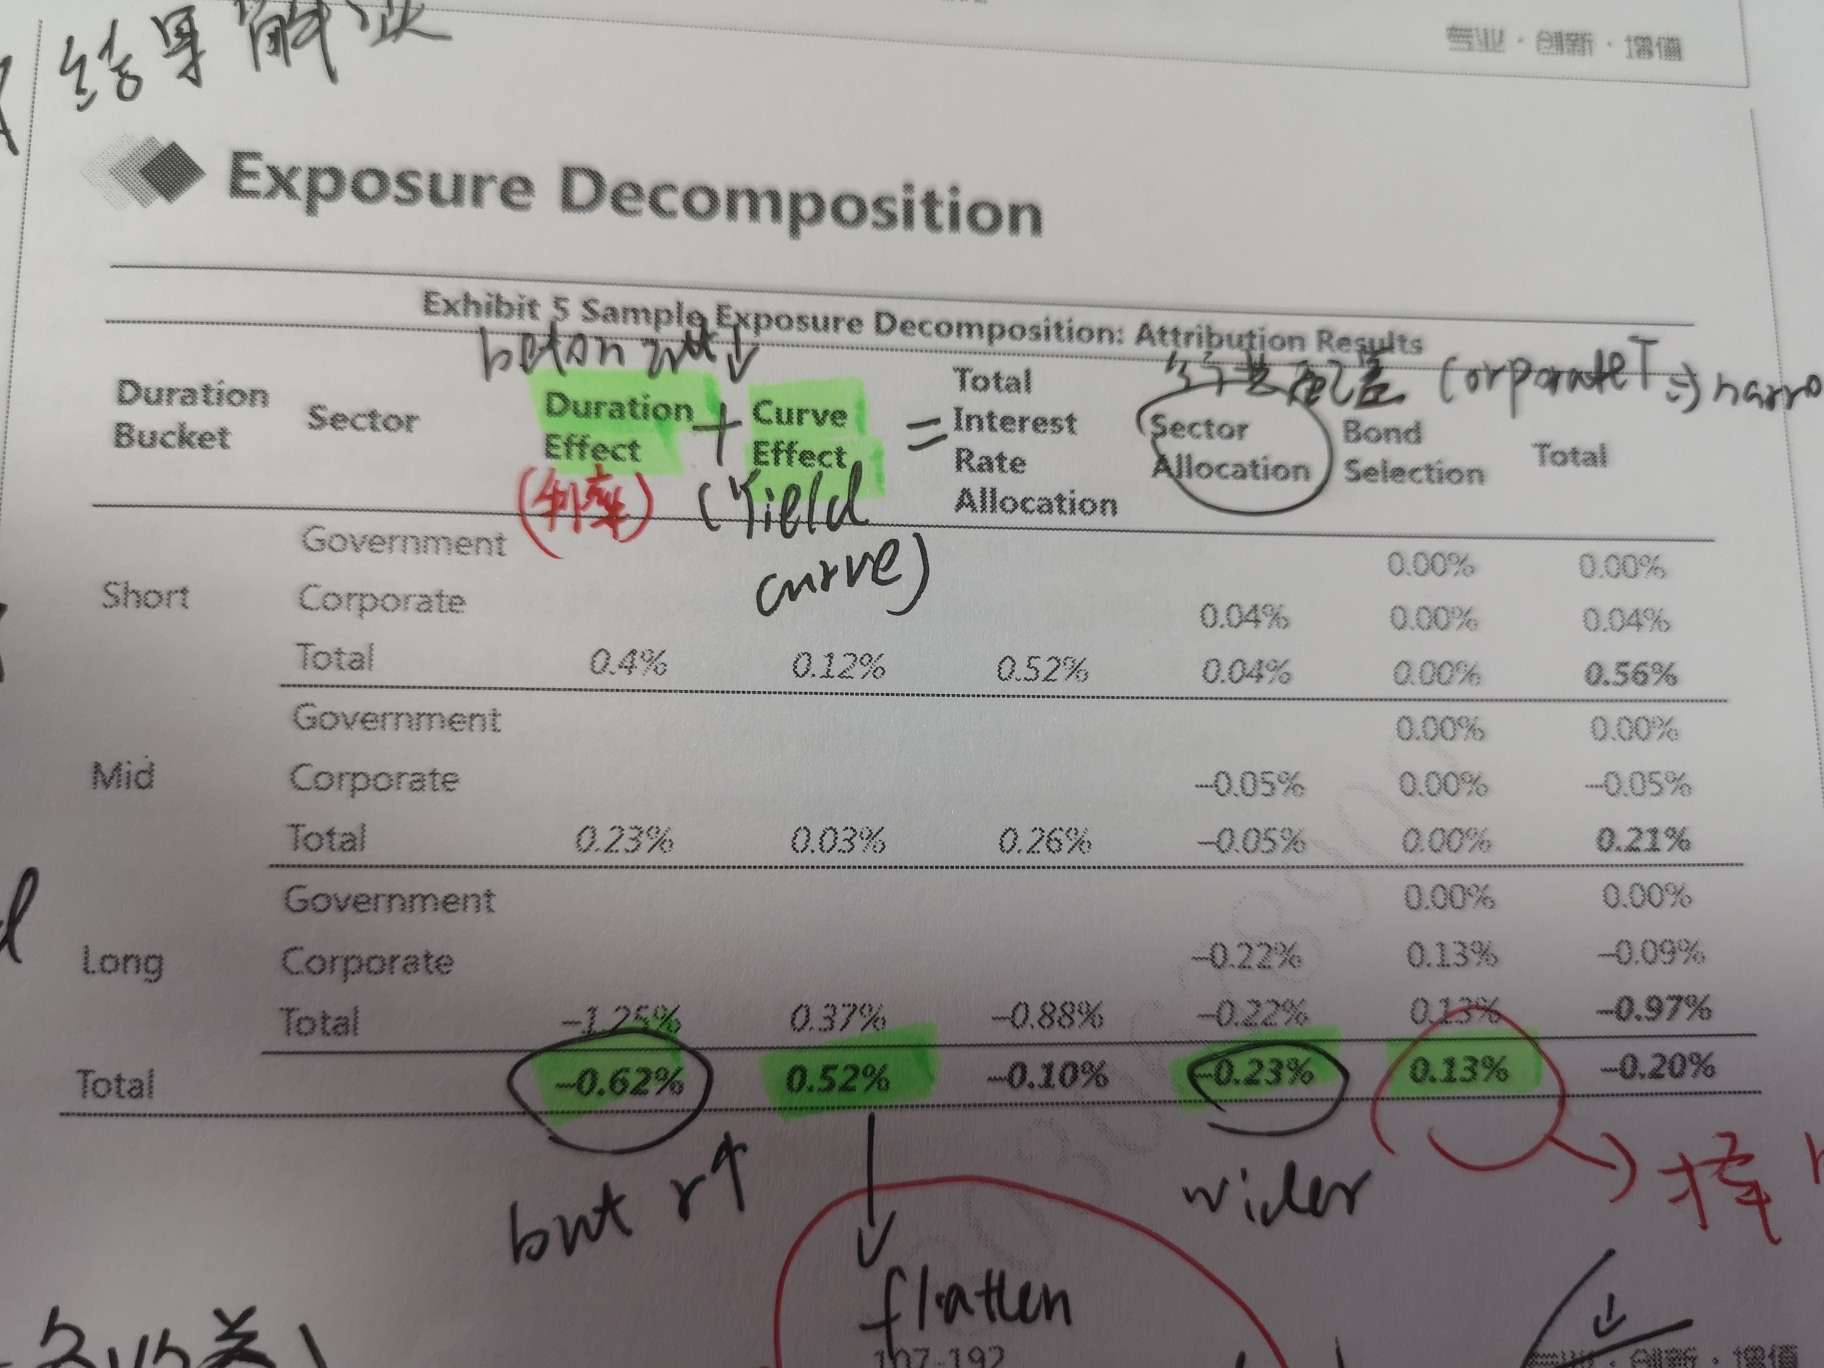 结果解读
专业·创新·增值
Exposure Decomposition
Exhibit 5 Sample Exposure Decomposition: Attribution Results
beton rtt↓
行业配置 corporate↑ => narro
Duration Bucket Sector Duration Effect + Curve Effect = Total Interest Rate Allocation Sector Allocation Bond Selection Total
(利率) (Yield curve)
Short Government 0.00% 0.00%
Corporate 0.04% 0.00% 0.04%
Total 0.4% 0.12% 0.52% 0.04% 0.00% 0.56%
Mid Government 0.00% 0.00%
Corporate –0.05% 0.00% –0.05%
Total 0.23% 0.03% 0.26% –0.05% 0.00% 0.21%
Long Government 0.00% 0.00%
Corporate –0.22% 0.13% –0.09%
Total –1.25% 0.37% –0.88% –0.22% 0.13% –0.97%
Total –0.62% 0.52% –0.10% –0.23% 0.13% –0.20%
but r↑
wider
择
flatten
107-192
专业·创新·增值